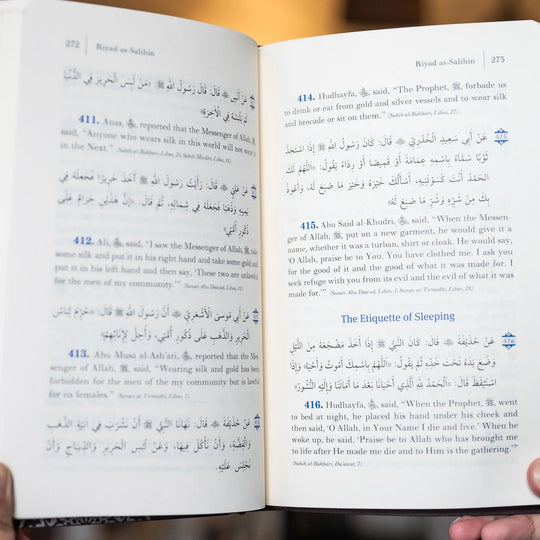 272 Riyad as-Salihin
عَنْ أَنَسٍ ﷺ قَالَ: قَالَ رَسُولُ اللَّهِ ﷺ: «مَنْ لَبِسَ الْحَرِيرَ فِي الدُّنْيَا
لَمْ يَلْبَسْهُ فِي الْآخِرَةِ»
411. Anas, reported that the Messenger of Allah,
said, “Anyone who wears silk in this world will not wear it
in the Next.” (Sahih al-Bukhari, Libas, 25, Sahih Muslim, Libas, 11)
عَنْ عَلِيٍّ قَالَ: رَأَيْتُ رَسُولَ اللَّهِ ﷺ أَخَذَ حَرِيرًا فَجَعَلَهُ فِي
يَمِينِهِ وَذَهَبًا فَجَعَلَهُ فِي شِمَالِهِ، ثُمَّ قَالَ: «إِنَّ هَذَيْنِ حَرَامٌ عَلَى
ذُكُورِ أُمَّتِي»
412. Ali, said, “I saw the Messenger of Allah, take
some silk and put it in his right hand and take some gold and
put it in his left hand and then say, ‘These two are unlawful
for the men of my community.’” (Sunan Abu Dawud, Libas, 11)
عَنْ أَبِي مُوسَى الْأَشْعَرِيِّ أَنَّ رَسُولَ اللَّهِ ﷺ قَالَ: «حُرِّمَ لِبَاسُ
الْحَرِيرِ وَالذَّهَبِ عَلَى ذُكُورِ أُمَّتِي، وَأُحِلَّ لِإِنَاثِهِمْ»
413. Abu Musa al-Ash'ari, reported that the Mes-
senger of Allah, said, “Wearing silk and gold has been
forbidden for the men of my community but is lawful
for its females.” (Sunan at-Tirmidhi, Libas, 1)
عَنْ حُذَيْفَةَ قَالَ: نَهَانَا النَّبِيُّ ﷺ أَنْ نَشْرَبَ فِي آنِيَةِ الذَّهَبِ
وَالْفِضَّةِ، وَأَنْ نَأْكُلَ فِيهَا، وَعَنْ لُبْسِ الْحَرِيرِ وَالدِّيبَاجِ وَأَنْ
نَجْلِسَ عَلَيْهِ
Riyad as-Salihin 273
414. Hudhayfa, said, “The Prophet, ﷺ, forbade us
to drink or eat from gold and silver vessels and to wear silk
and brocade or sit on them.” (Sahih al-Bukhari, Libas, 27)
٤١٥ عَنْ أَبِي سَعِيدٍ الْخُدْرِيِّ قَالَ: كَانَ رَسُولُ اللَّهِ ﷺ إِذَا اسْتَجَدَّ
ثَوْبًا سَمَّاهُ بِاسْمِهِ عِمَامَةً أَوْ قَمِيصًا أَوْ رِدَاءً يَقُولُ: «اللَّهُمَّ لَكَ
الْحَمْدُ أَنْتَ كَسَوْتَنِيهِ، أَسْأَلُكَ خَيْرَهُ وَخَيْرَ مَا صُنِعَ لَهُ، وَأَعُوذُ
بِكَ مِنْ شَرِّهِ وَشَرِّ مَا صُنِعَ لَهُ»
415. Abu Said al-Khudri, said, “When the Messen-
ger of Allah, ﷺ, put on a new garment, he would give it a
name, whether it was a turban, shirt or cloak. He would say,
‘O Allah, praise be to You. You have clothed me. I ask you
for the good of it and the good of what it was made for. I
seek refuge with you from its evil and the evil of what it was
made for.’” (Sunan Abu Dawud, Libas, 1, Sunan at-Tirmidhi, Libas, 28)
The Etiquette of Sleeping
٤١٦ عَنْ حُذَيْفَةَ قَالَ: كَانَ النَّبِيُّ ﷺ إِذَا أَخَذَ مَضْجَعَهُ مِنَ اللَّيْلِ
وَضَعَ يَدَهُ تَحْتَ خَدِّهِ ثُمَّ يَقُولُ: «اللَّهُمَّ بِاسْمِكَ أَمُوتُ وَأَحْيَا» وَإِذَا
اسْتَيْقَظَ قَالَ: «الْحَمْدُ لِلَّهِ الَّذِي أَحْيَانَا بَعْدَ مَا أَمَاتَنَا وَإِلَيْهِ النُّشُورُ»
416. Hudhayfa, said, “When the Prophet, ﷺ, went
to bed at night, he placed his hand under his cheek and
then said, ‘O Allah, in Your Name I die and live.’ When he
woke up, he said, ‘Praise be to Allah who has brought me
to life after He made me die and to Him is the gathering.’”
(Sahih al-Bukhari, Da'awat, 7)